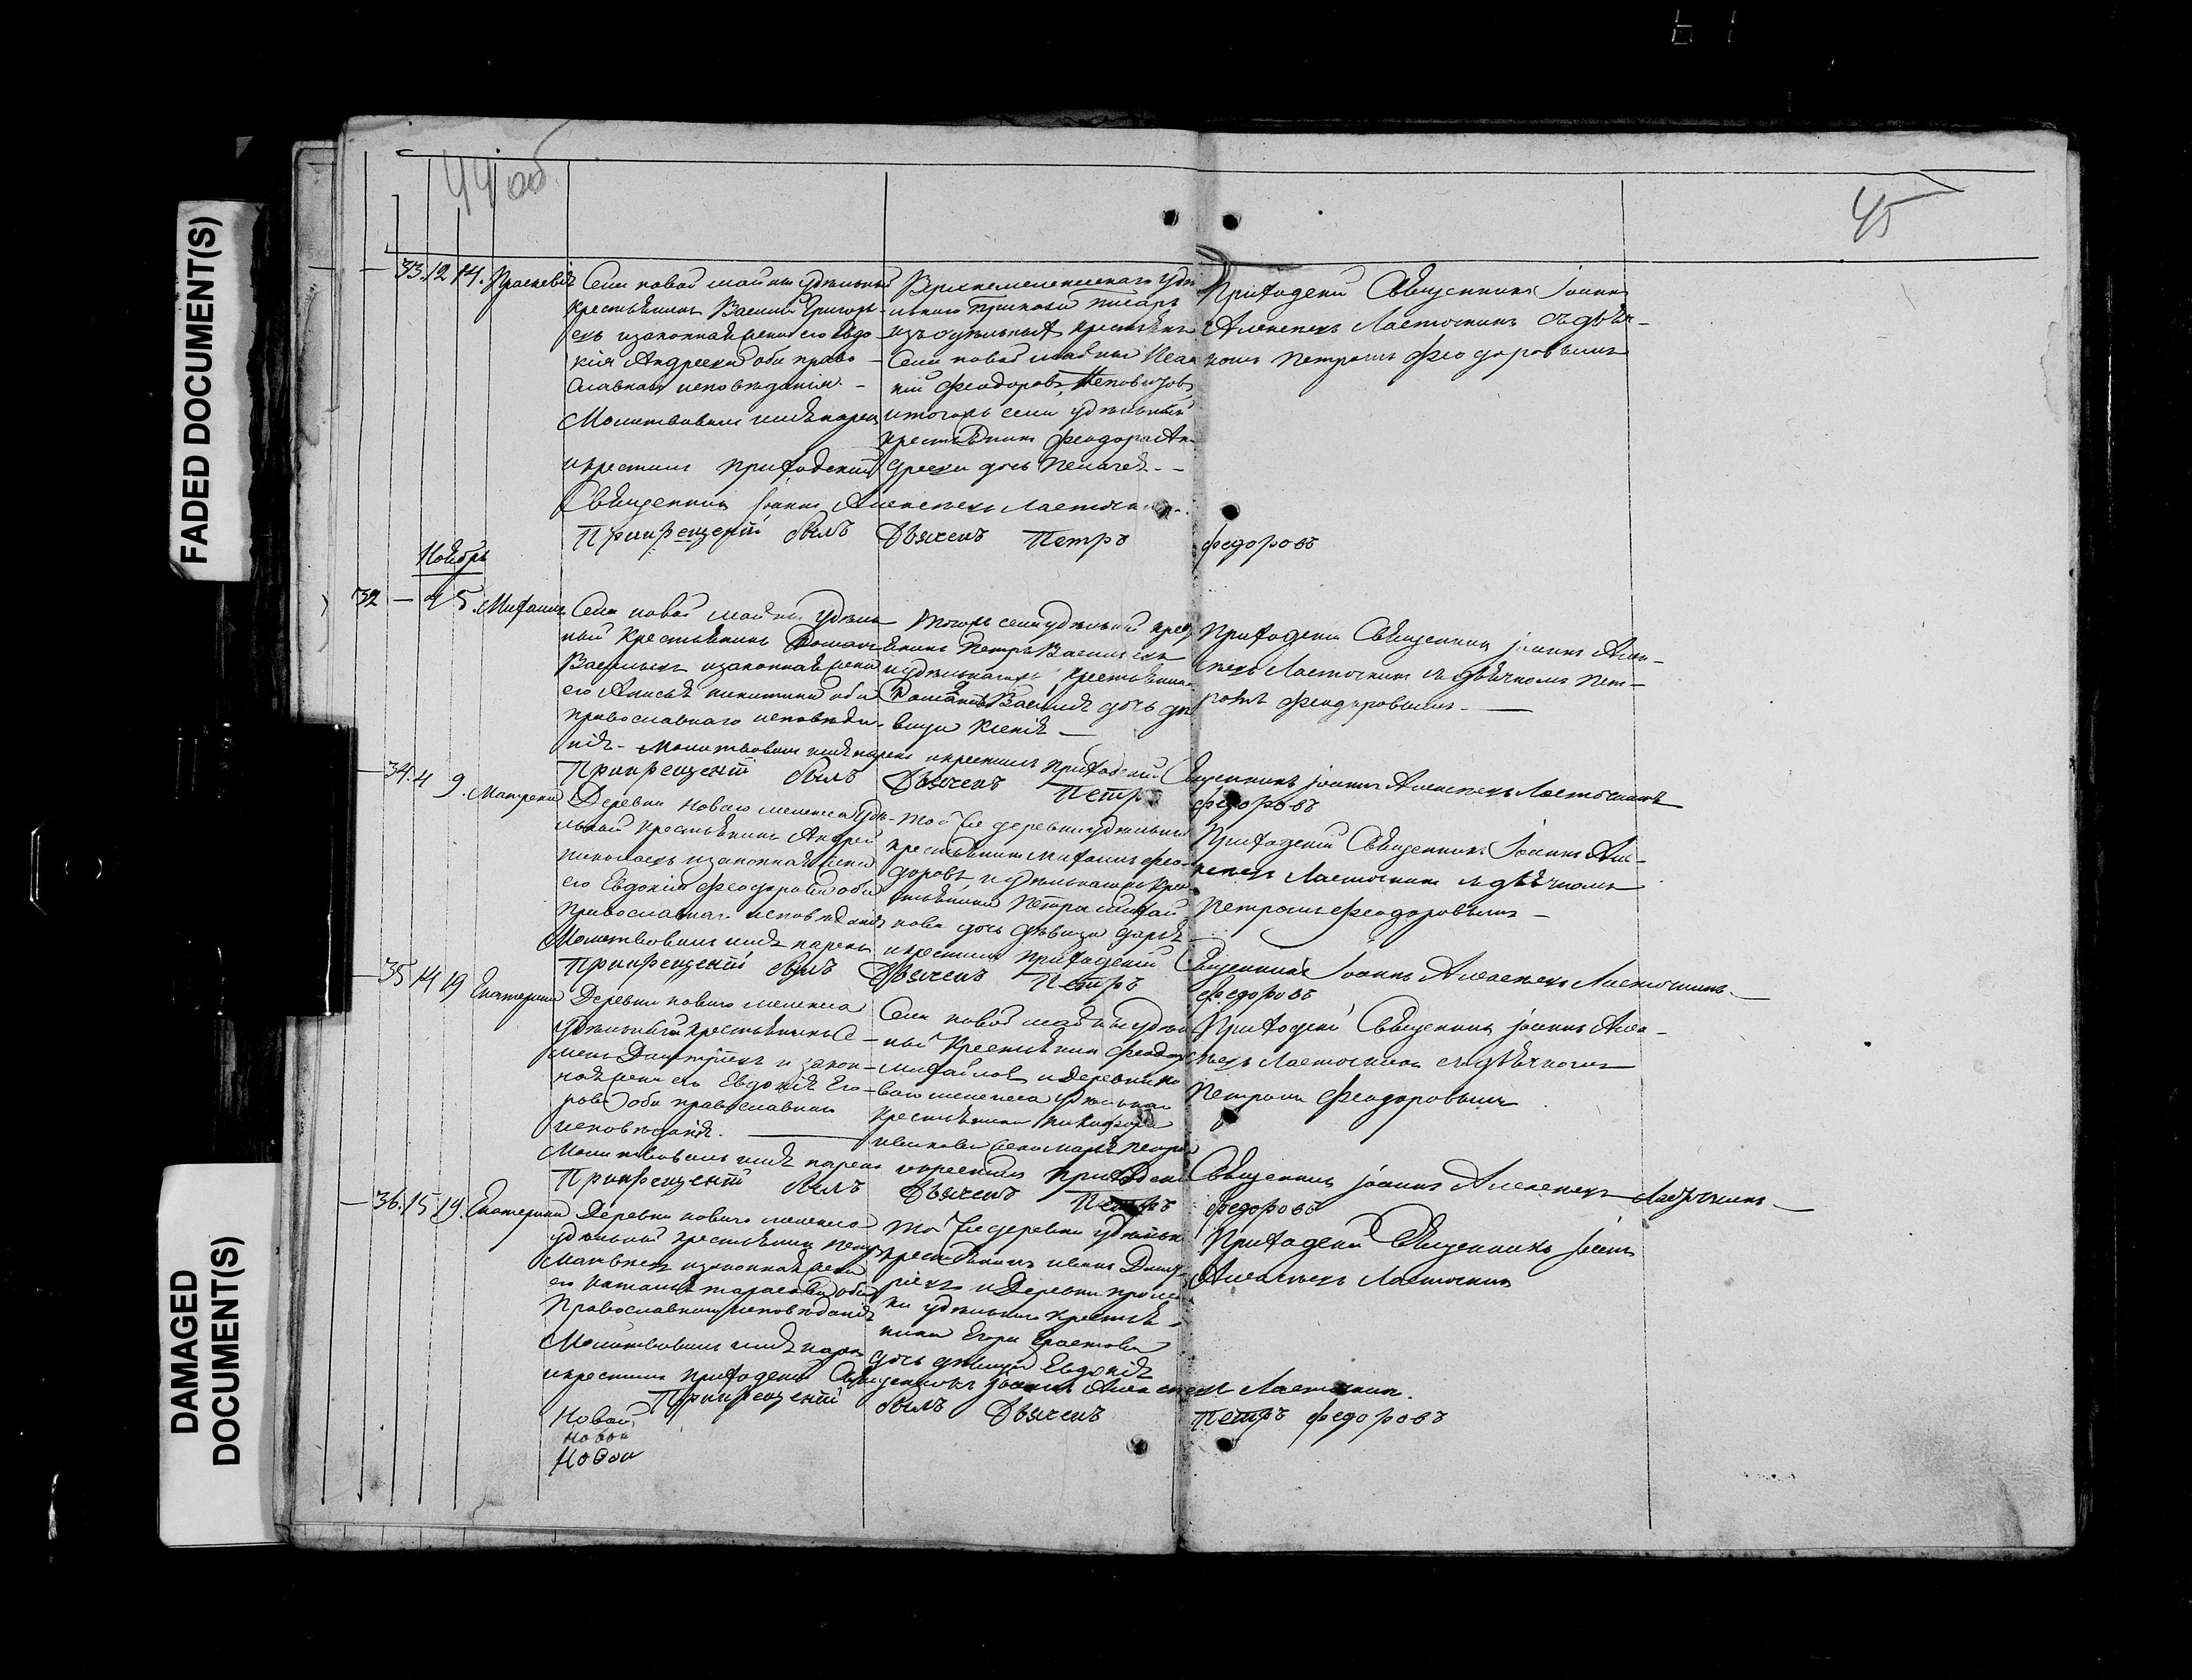 FADED DOCUMENT(S)
DAMAGED
DOCUMENT(S)
44 об.
45
33. 12 14. Праскевія
Села новой майны удѣльный
крестьянинъ Василій Григорь-
евъ изаконная жена его Евдо
кія Андреева оба право
славнаго исповѣданія
Молитвовалъ имя нарекъ
икрестилъ приходскій
Священникъ Іоаннъ Алексѣевъ Ласточкинъ
При крещеніи былъ Дьячекъ Петръ Федоровъ
удѣ
льнаго приказа писарь
изъ удѣльныхъ крестьянъ
Села новой майны
Феодоровъ
итогожъ села удѣльнаго
крестьянина Феодора Ан
дреева дочь Пелагея
Приходскій Священникъ Іоаннъ
Алексѣевъ Ласточкинъ съ дьяч-
комъ Петромъ Феодоровымъ
Ноябрь
32 — 5. Михаилъ
Села новой майны Удѣль
ный Крестьянинъ
Васильевъ изаконная жена
его Анисья никитина оба
православнаго исповѣда
нія. Молитвовалъ имя нарекъ икрестилъ приходскій Священникъ Іоаннъ Алексѣевъ Ласточкинъ
При крещеніи былъ Дьячекъ Петръ Федоровъ
Тогожъ села удѣльный крес
янинъ Петръ Васильевъ
иудѣльнагожъ крестьянина
дочь дѣ
вица Ксенія
Приходскій Священникъ Іоаннъ Алек-
сѣевъ Ласточкинъ съ дьячкомъ Пет-
ромъ Феодоровымъ
34. 4 9. Матрена
Деревни Новаго мелекеса Удѣ-
льный крестьянинъ Андрей
николаевъ изаконная жена
его Евдокія Феодорова оба
Православнаго исповѣданія
Молитвовалъ имя нарекъ икрестилъ приходскій Священникъ Іоаннъ Алексѣевъ Ласточкинъ
При крещеніи былъ Дьячекъ Петръ Федоровъ
Той же деревни удѣльный
крестьянинъ Михаилъ Фео-
доровъ иудѣльнагожъ кре
стьянина Петра Михай
лова дочь дѣвица Дарья
Приходскій Священникъ Іоаннъ Але-
ксѣевъ Ласточкинъ съ дьячкомъ
Петромъ Феодоровымъ
35 14 19 Екатерина
Деревни новаго мелекеса
Удѣльный крестьянинъ Се-
менъ Дмитріевъ и закон-
ная жена его Евдокія Его-
рова оба православнаго
исповѣданія.
Молитвовалъ имя нарекъ икрестилъ Приходскій Священникъ Іоаннъ Алексѣевъ Ласточкинъ
При крещеніи былъ Дьячекъ Петръ Федоровъ
Села новой майны удѣль
ный Крестьянинъ Феодоръ
Михайловъ и Деревни но
ваго мелекеса удѣльнаго
Крестьянина Никифора
жена Марья Петрова
Приходскій Священникъ Іоаннъ Алек-
сѣевъ Ласточкинъ съ дьячкомъ
Петромъ Феодоровымъ
36. 15 19. Екатерина
Деревни новаго мелекеса
удѣльный крестьянинъ Петръ
Матвѣевъ изаконная жена
его наталья тарасова оба
Православнаго исповѣданія
Молитвовалъ имя нарекъ
икрестилъ приходскій Священникъ Іоаннъ Алексѣевъ Ласточкинъ.
При крещеніи былъ Дьячекъ Петръ Федоровъ
Той же деревни удѣльный
крестьянинъ Иванъ Дмит-
ріевъ и Деревни
удѣльнаго крестья-
нина Егора
дочь дѣвица Евдокія
Приходскій Священникъ Іоаннъ
Алексѣевъ Ласточкинъ
Новой
Новой
Новой